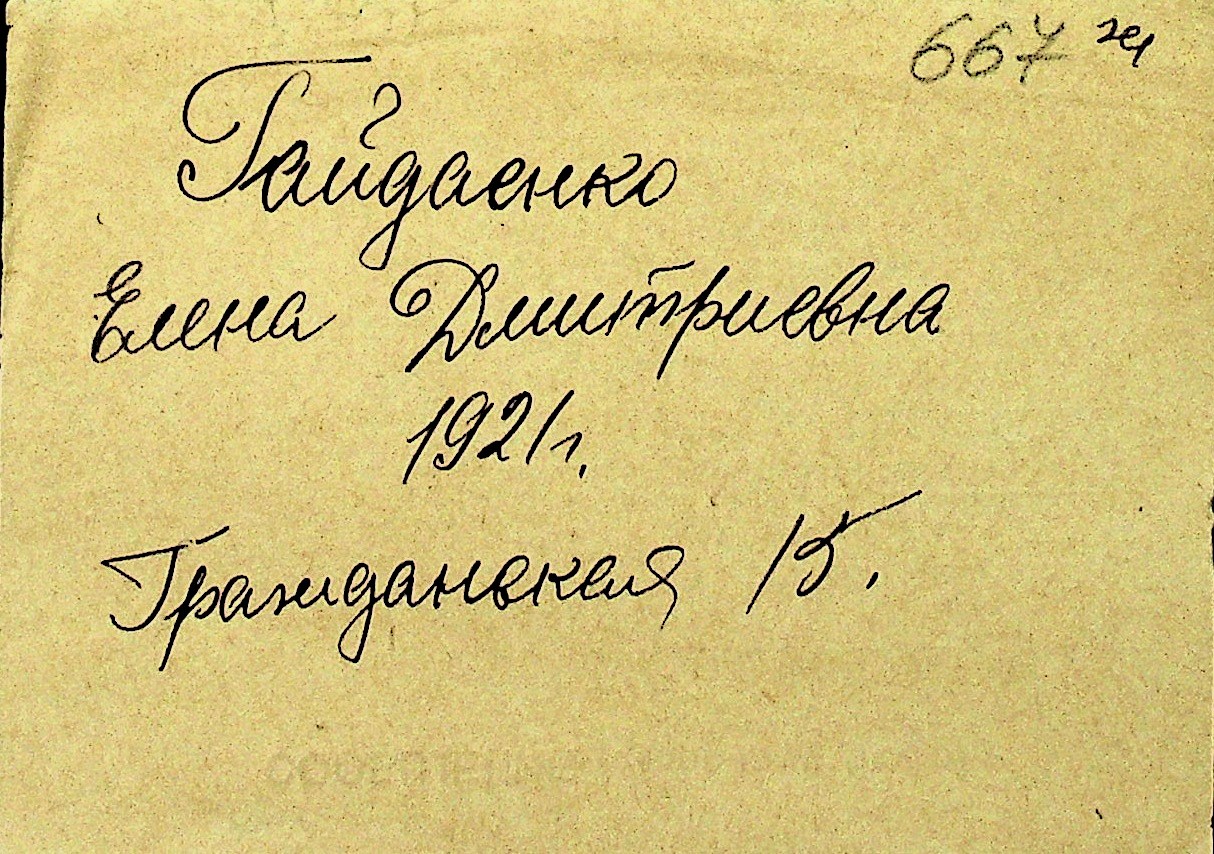 667 ж
Гайдаенко
Елена Дмитриевна
1921 г.
Гражданская 15.